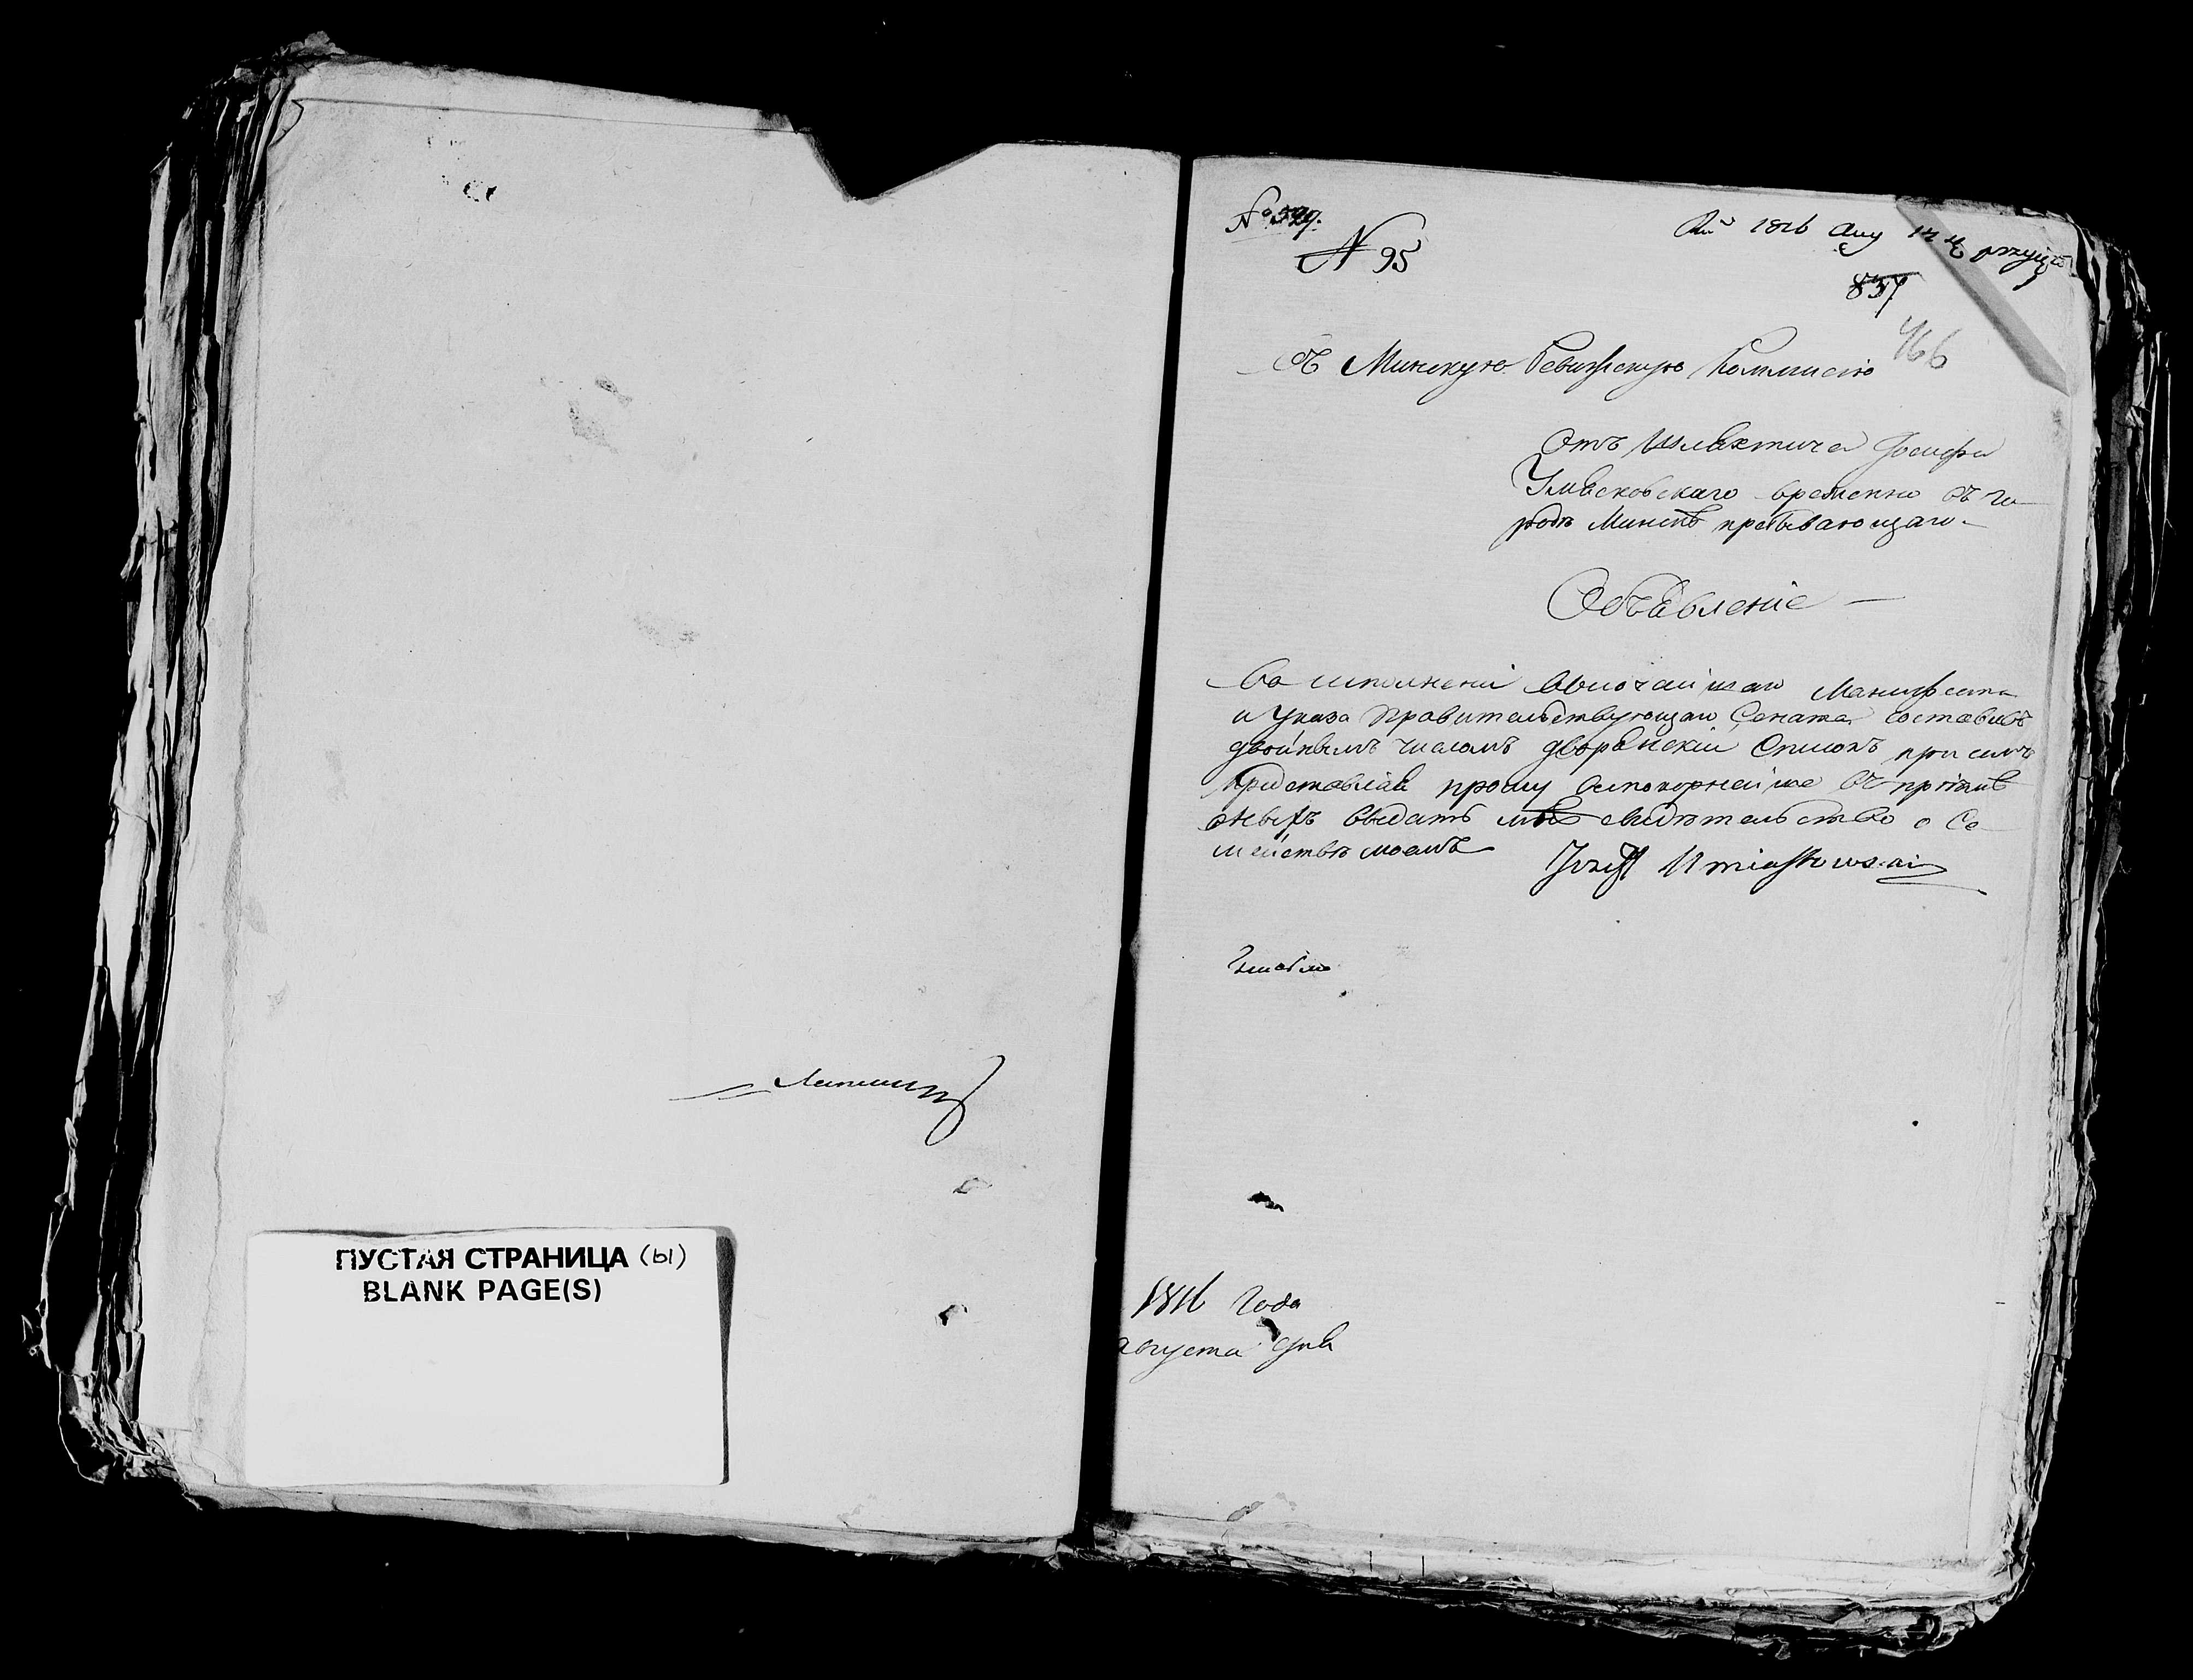 ПУСТАЯ СТРАНИЦА (ы)
BLANK PAGE(S)
№ 529.
N 95
1816 Aug 14
837
466
въ Минскую Ревижскую Коммисію
Отъ шляхтича Іосифа
Умястковскаго временно въ го-
родѣ Минскѣ пребывающаго
Объявленіе
Во исполненіи Высочайшаго Манифеста
и Указа Правительствующаго Сената составивъ
двойнымъ числомъ дворянскій Списокъ при семъ
представляя прошу всепокорнейше въ пріемѣ
оныхъ выдать мнѣ свидѣтельство о Се-
мействѣ моемъ
Jozef Umiastowski
1816 Года
августа дня